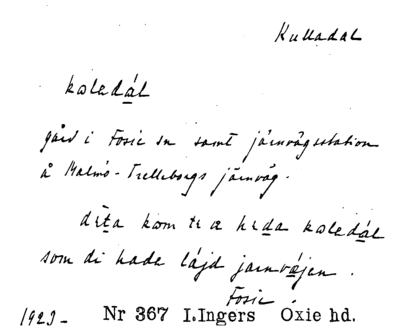 Kulladal
koledál
gård i Fosie sn samt järnvägsstation
å Malmö-Trelleborgs järnväg.
díta kom te a heda koledál
som di hade lájd jarnvǽjen.
Fosie.
1923- Nr 367 I.Ingers Oxie hd.